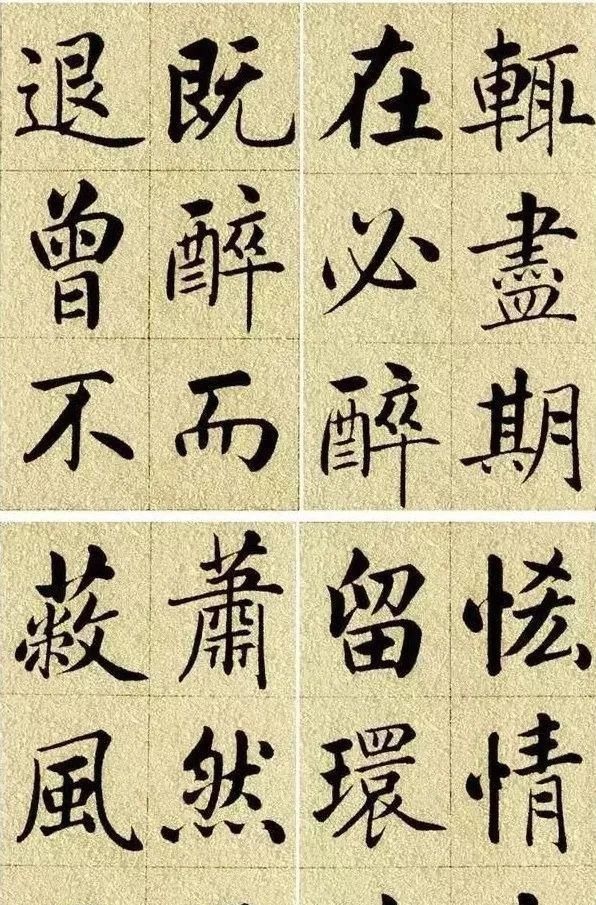 輒盡期
在必醉
既醉而
退曾不
恡情
留環
蕭然
蔽風